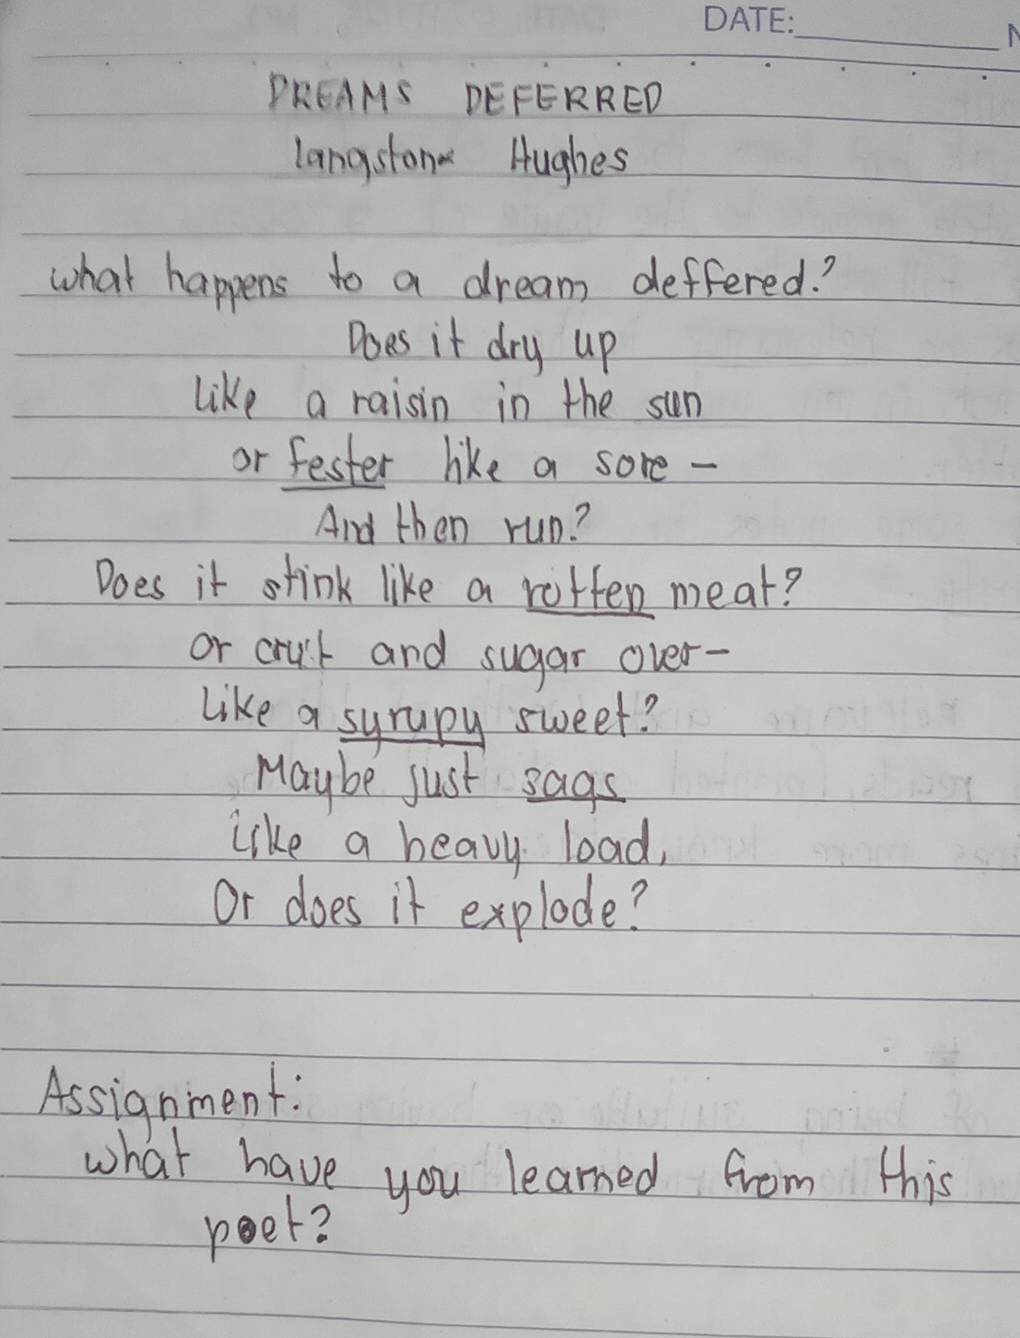 DATE:
DREAMS DEFERRED
Langston Hughes
What happens to a dream deffered?
Does it dry up
Like a raisin in the sun
or fester like a sore -
And then run?
Does it stink like a rotten meat?
or crust and sugar over-
Like a syrupy sweet?
Maybe just sags
like a heavy load,
Or does it explode?
Assignment:
What have you learned from this
poet?